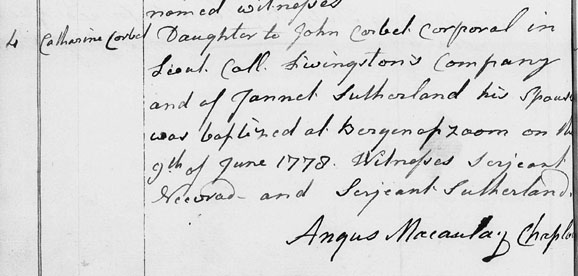 named witnesses
4 Catharine Corbel Daughter to John Corbel Corporal in
Lieut. Coll. Livingston's Company
and of Jannet Sutherland his Spouse
was baptized at Bergenopzoom on th
9th of June 1778. Witnesses Serjeant
and Serjeant Sutherland.
Angus Macaulay Chapla